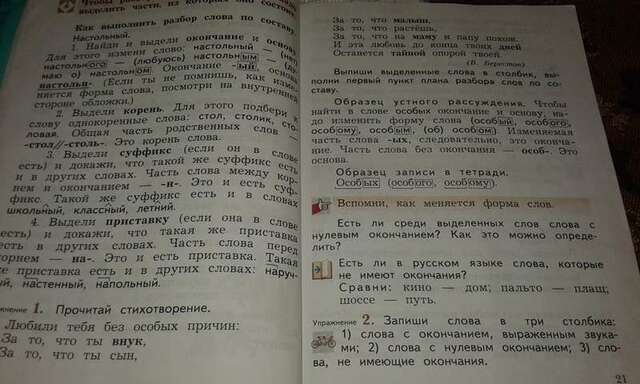 Чтобы
выделить части, из которых оно
Как выполнить разбор слова по составу
Настольный.
1. Найди и выдели окончание и основу.
Для этого измени слово: настольный — (нет)
настольного — (любуюсь) настольным —
маю о) настольном. Окончание -ый, основа
настольн-. (Если ты не помнишь, как изме-
няется форма слова, посмотри на внутренней
стороне обложки.)
2. Выдели корень. Для этого подбери к
слову однокоренные слова: стол, столик, сто-
ловая. Общая часть родственных слов —
-стол//-столь-. Это корень слова.
3. Выдели суффикс (если он в слове
есть) и докажи, что такой же суффикс есть
и в других словах. Часть слова между кор-
нем и окончанием — -н-. Это и есть суф-
фикс. Такой же суффикс есть и в словах
школьный, классный, летний.
4. Выдели приставку (если она в слове
есть) и докажи, что такая же приставка
есть в других словах. Часть слова перед
корнем — на-. Это и есть приставка. Такая
же приставка есть и в других словах: наруч-
ный, настенный, напольный.
1. Прочитай стихотворение.
Любили тебя без особых причин:
За то, что ты внук,
За то, что ты сын,
За то, что малыш,
За то, что растёшь,
За то, что на маму и папу похож.
И эта любовь до конца твоих дней
Останется тайной опорой твоей.
(В. Берестов)
Выпиши выделенные слова в столбик, вы-
полни первый пункт плана разбора слов по со-
ставу.
Образец устного рассуждения. Чтобы
найти в слове особых окончание и основу, на-
до изменить форму слова (особый, особого,
особому, особым, (об) особом). Изменяемая
часть слова -ых, следовательно, это оконча-
ние. Часть слова без окончания — особ-. Это
основа.
Образец записи в тетради.
Особых (особого, особому).
Вспомни, как меняется форма слов.
Есть ли среди выделенных слов слова с
нулевым окончанием? Как это можно опреде-
лить?
Есть ли в русском языке слова, которые
не имеют окончания?
Сравни: кино — дом; пальто — плащ;
шоссе — путь.
Упражнение 2. Запиши слова в три столбика:
1) слова с окончанием, выраженным звука-
ми; 2) слова с нулевым окончанием; 3) сло-
ва, не имеющие окончания.
21